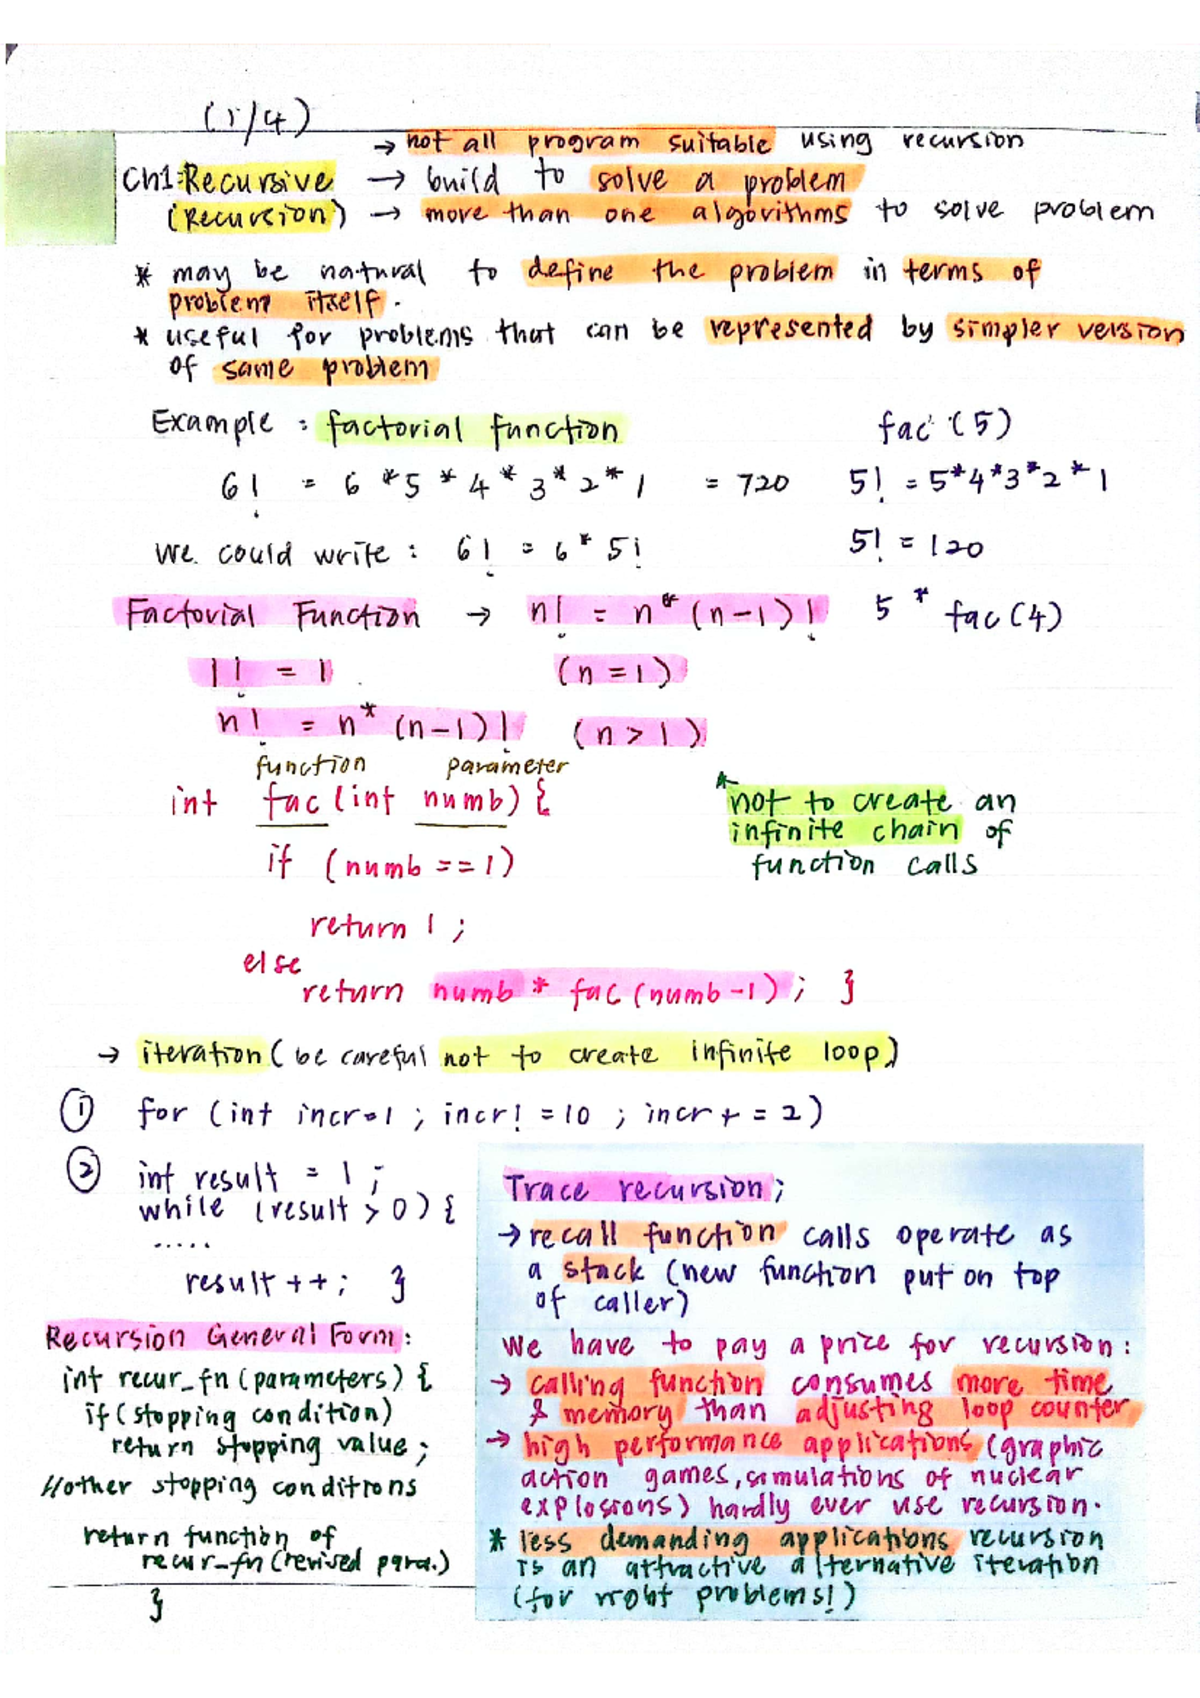 (1/4)
→ not all program suitable using recursion
Ch1: Recursive → build to solve a problem
(Recursion) → more than one algorithms to solve problem
* may be natural to define the problem in terms of
problem itself.
* useful for problems that can be represented by simpler version
of same problem
Example : factorial function fac (5)
6! = 6 * 5 * 4 * 3 * 2 * 1 = 720 5! = 5*4*3*2*1
we could write : 6! = 6 * 5! 5! = 120
Factorial Function → n! = n* (n-1)! 5 * fac(4)
1! = 1 (n=1)
n! = n* (n-1)! (n > 1)
function parameter
int fac (int numb) {
if (numb == 1)
return 1 ;
else
return numb * fac (numb -1) ; }
* not to create an
infinite chain of
function calls
→ iteration ( be careful not to create infinite loop )
① for (int incr=1 ; incr! = 10 ; incr + = 2)
② int result = 1 ;
while (result > 0) {
.....
result ++ ; }
Recursion General Form :
int recur_fn (parameters) {
if (stopping condition)
return stopping value ;
//other stopping conditions
return function of
recur_fn (revised para.)
}
Trace recursion ;
→ recall function calls operate as
a stack (new function put on top
of caller)
We have to pay a price for recursion :
→ calling function consumes more time
& memory than adjusting loop counter
→ high performance applications (graphic
action games, simulations of nuclear
explosions) hardly ever use recursion.
* less demanding applications recursion
is an attractive alternative iteration
(for right problems!)